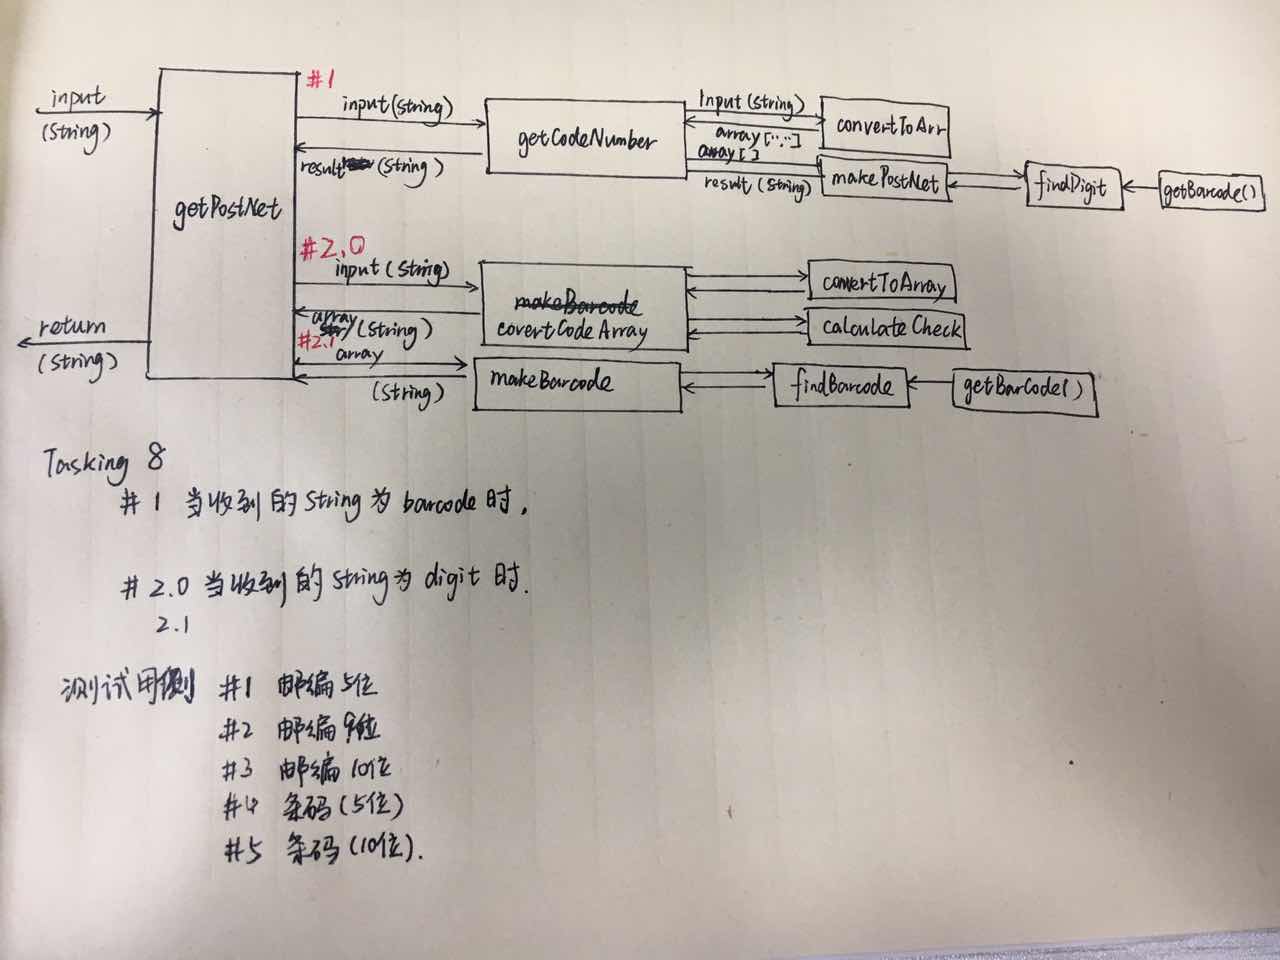 input
(String)
getPostNet
return
(String)
#1
input (String)
result (String)
getCodeNumber
Input (String)
array [....]
array [ ]
result (String)
convertToArr
makePostNet
findDigit
getBarcode()
#2.0
input (String)
array
(String)
makeBarcode
covertCodeArray
convertToArray
calculateCheck
#2.1
array
(String)
makeBarcode
findBarcode
getBarCode()
Tasking 8
#1 当收到的String为barcode时.
#2.0 当收到的string为digit时.
2.1
测试用例 #1 邮编5位
#2 邮编9位
#3 邮编10位
#4 条码(5位)
#5 条码(10位).